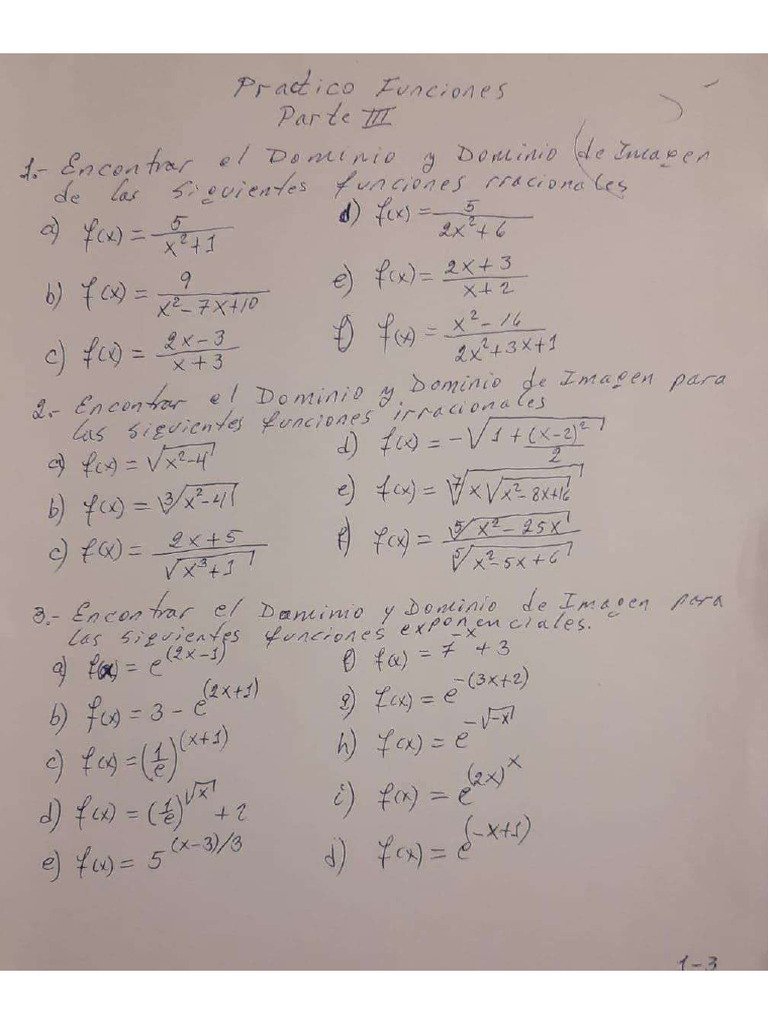 Practico Funciones
Parte III
1.- Encontrar el Dominio y Dominio de Imagen
de las siguientes funciones rracionales
a) f(x) = 5/(x²+1)
d) f(x) = 5/(2x²+6)
b) f(x) = 9/(x²-7x+10)
e) f(x) = (2x+3)/(x+2)
c) f(x) = (2x-3)/(x+3)
f) f(x) = (x²-16)/(2x²+3x+1)
2.- Encontrar el Dominio y Dominio de Imagen para
las siguientes funciones irracionales
a) f(x) = √(x²-4)
d) f(x) = -√(1+(x-2)²/2)
b) f(x) = ∛(x²-4)
e) f(x) = ⁷√(x√(x²-8x+16))
c) f(x) = (2x+5)/√(x³+1)
f) f(x) = ⁵√(x²-25x)/⁵√(x²-5x+6)
3.- Encontrar el Dominio y Dominio de Imagen para
las siguientes funciones exponenciales.
a) f(x) = e^(2x-1)
f) f(x) = 7^-x + 3
b) f(x) = 3 - e^(2x+1)
g) f(x) = e^-(3x+2)
c) f(x) = (1/e)^(x+1)
h) f(x) = e^-√-x
d) f(x) = (1/e)^√x + 2
i) f(x) = e^(2x)^x
e) f(x) = 5^(x-3)/3
j) f(x) = e^(-x+1)
1-3